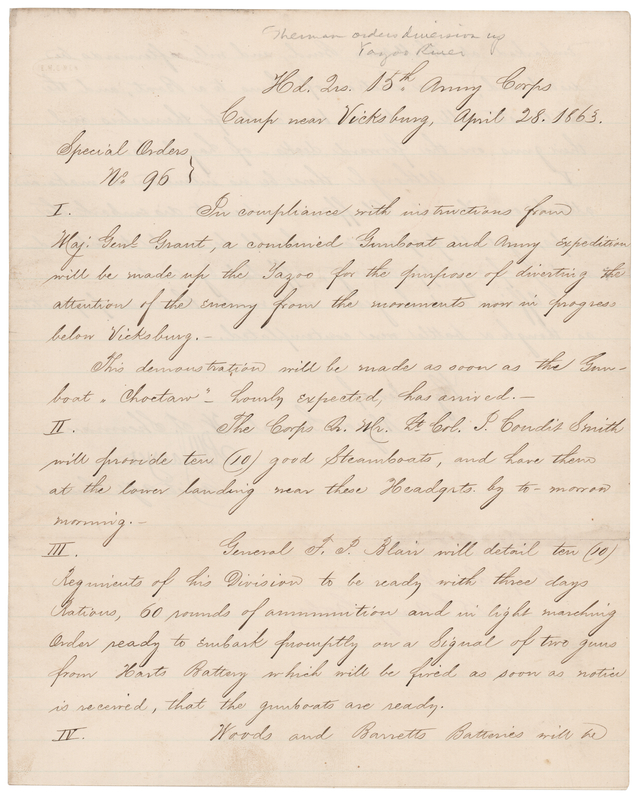 Sherman orders diversion up
Yazoo River
Hd. Qrs. 15th Army Corps
Camp near Vicksburg, April 28. 1863.
Special Orders
No 96
I. In compliance with instructions from
Maj: Genl. Grant, a combined Gunboat and Army Expedition
will be made up the Yazoo for the purpose of diverting the
attention of the Enemy from the movements now in progress
below Vicksburg.—
This demonstration will be made as soon as the Gun-
boat "Choctaw"- hourly expected, has arrived.—
II. The Corps Q. Mr. Lt. Col. J. Condit Smith
will provide ten (10) good Steamboats, and have them
at the lower landing near these Headqrts. by to-morrow
morning.—
III. General F. P. Blair will detail ten (10)
Regiments of his Division to be ready with three days
Rations, 60 rounds of ammunition and in light marching
Order ready to Embark promptly on a Signal of two guns
from Harts Battery which will be fired as soon as notice
is received, that the gunboats are ready.
IV. Woods and Barretts Batteries will be